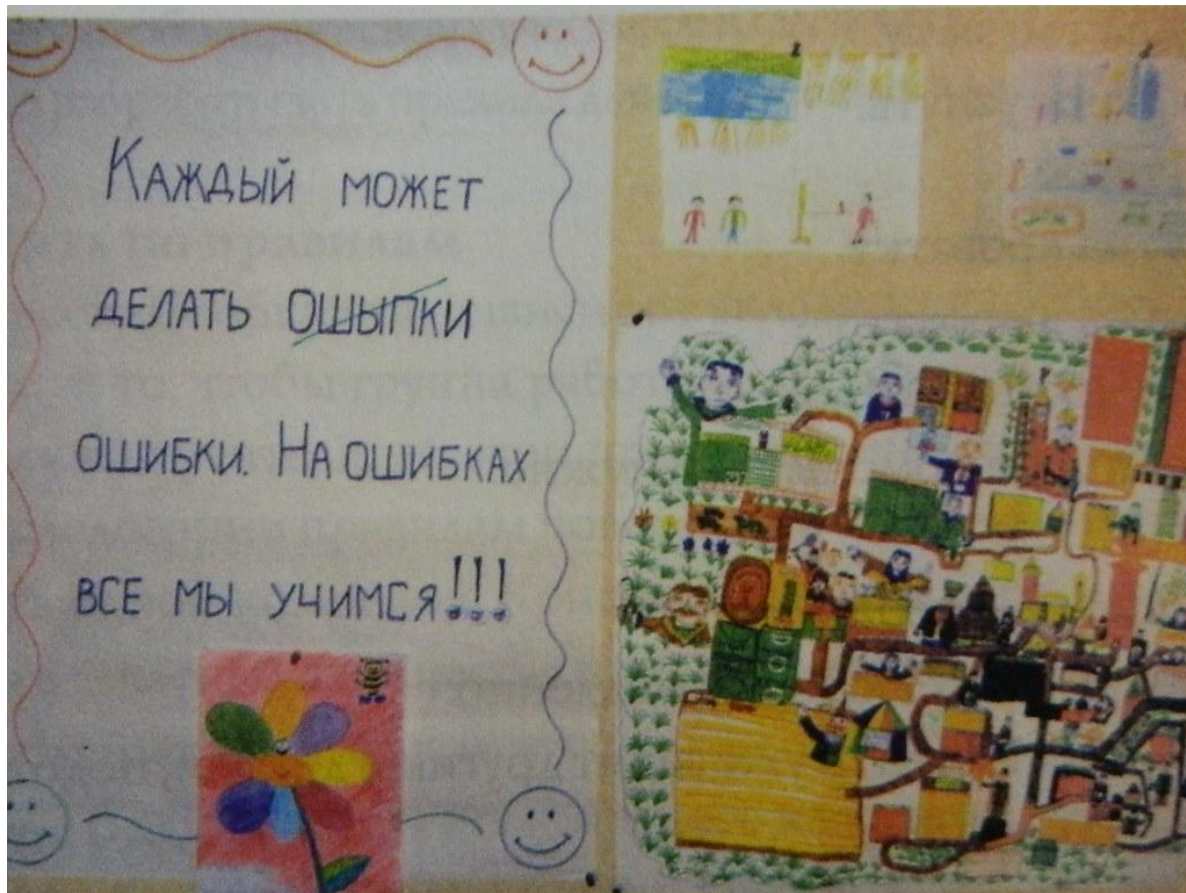 Каждый может
делать ошыпки
ошибки. На ошибках
все мы учимся!!!